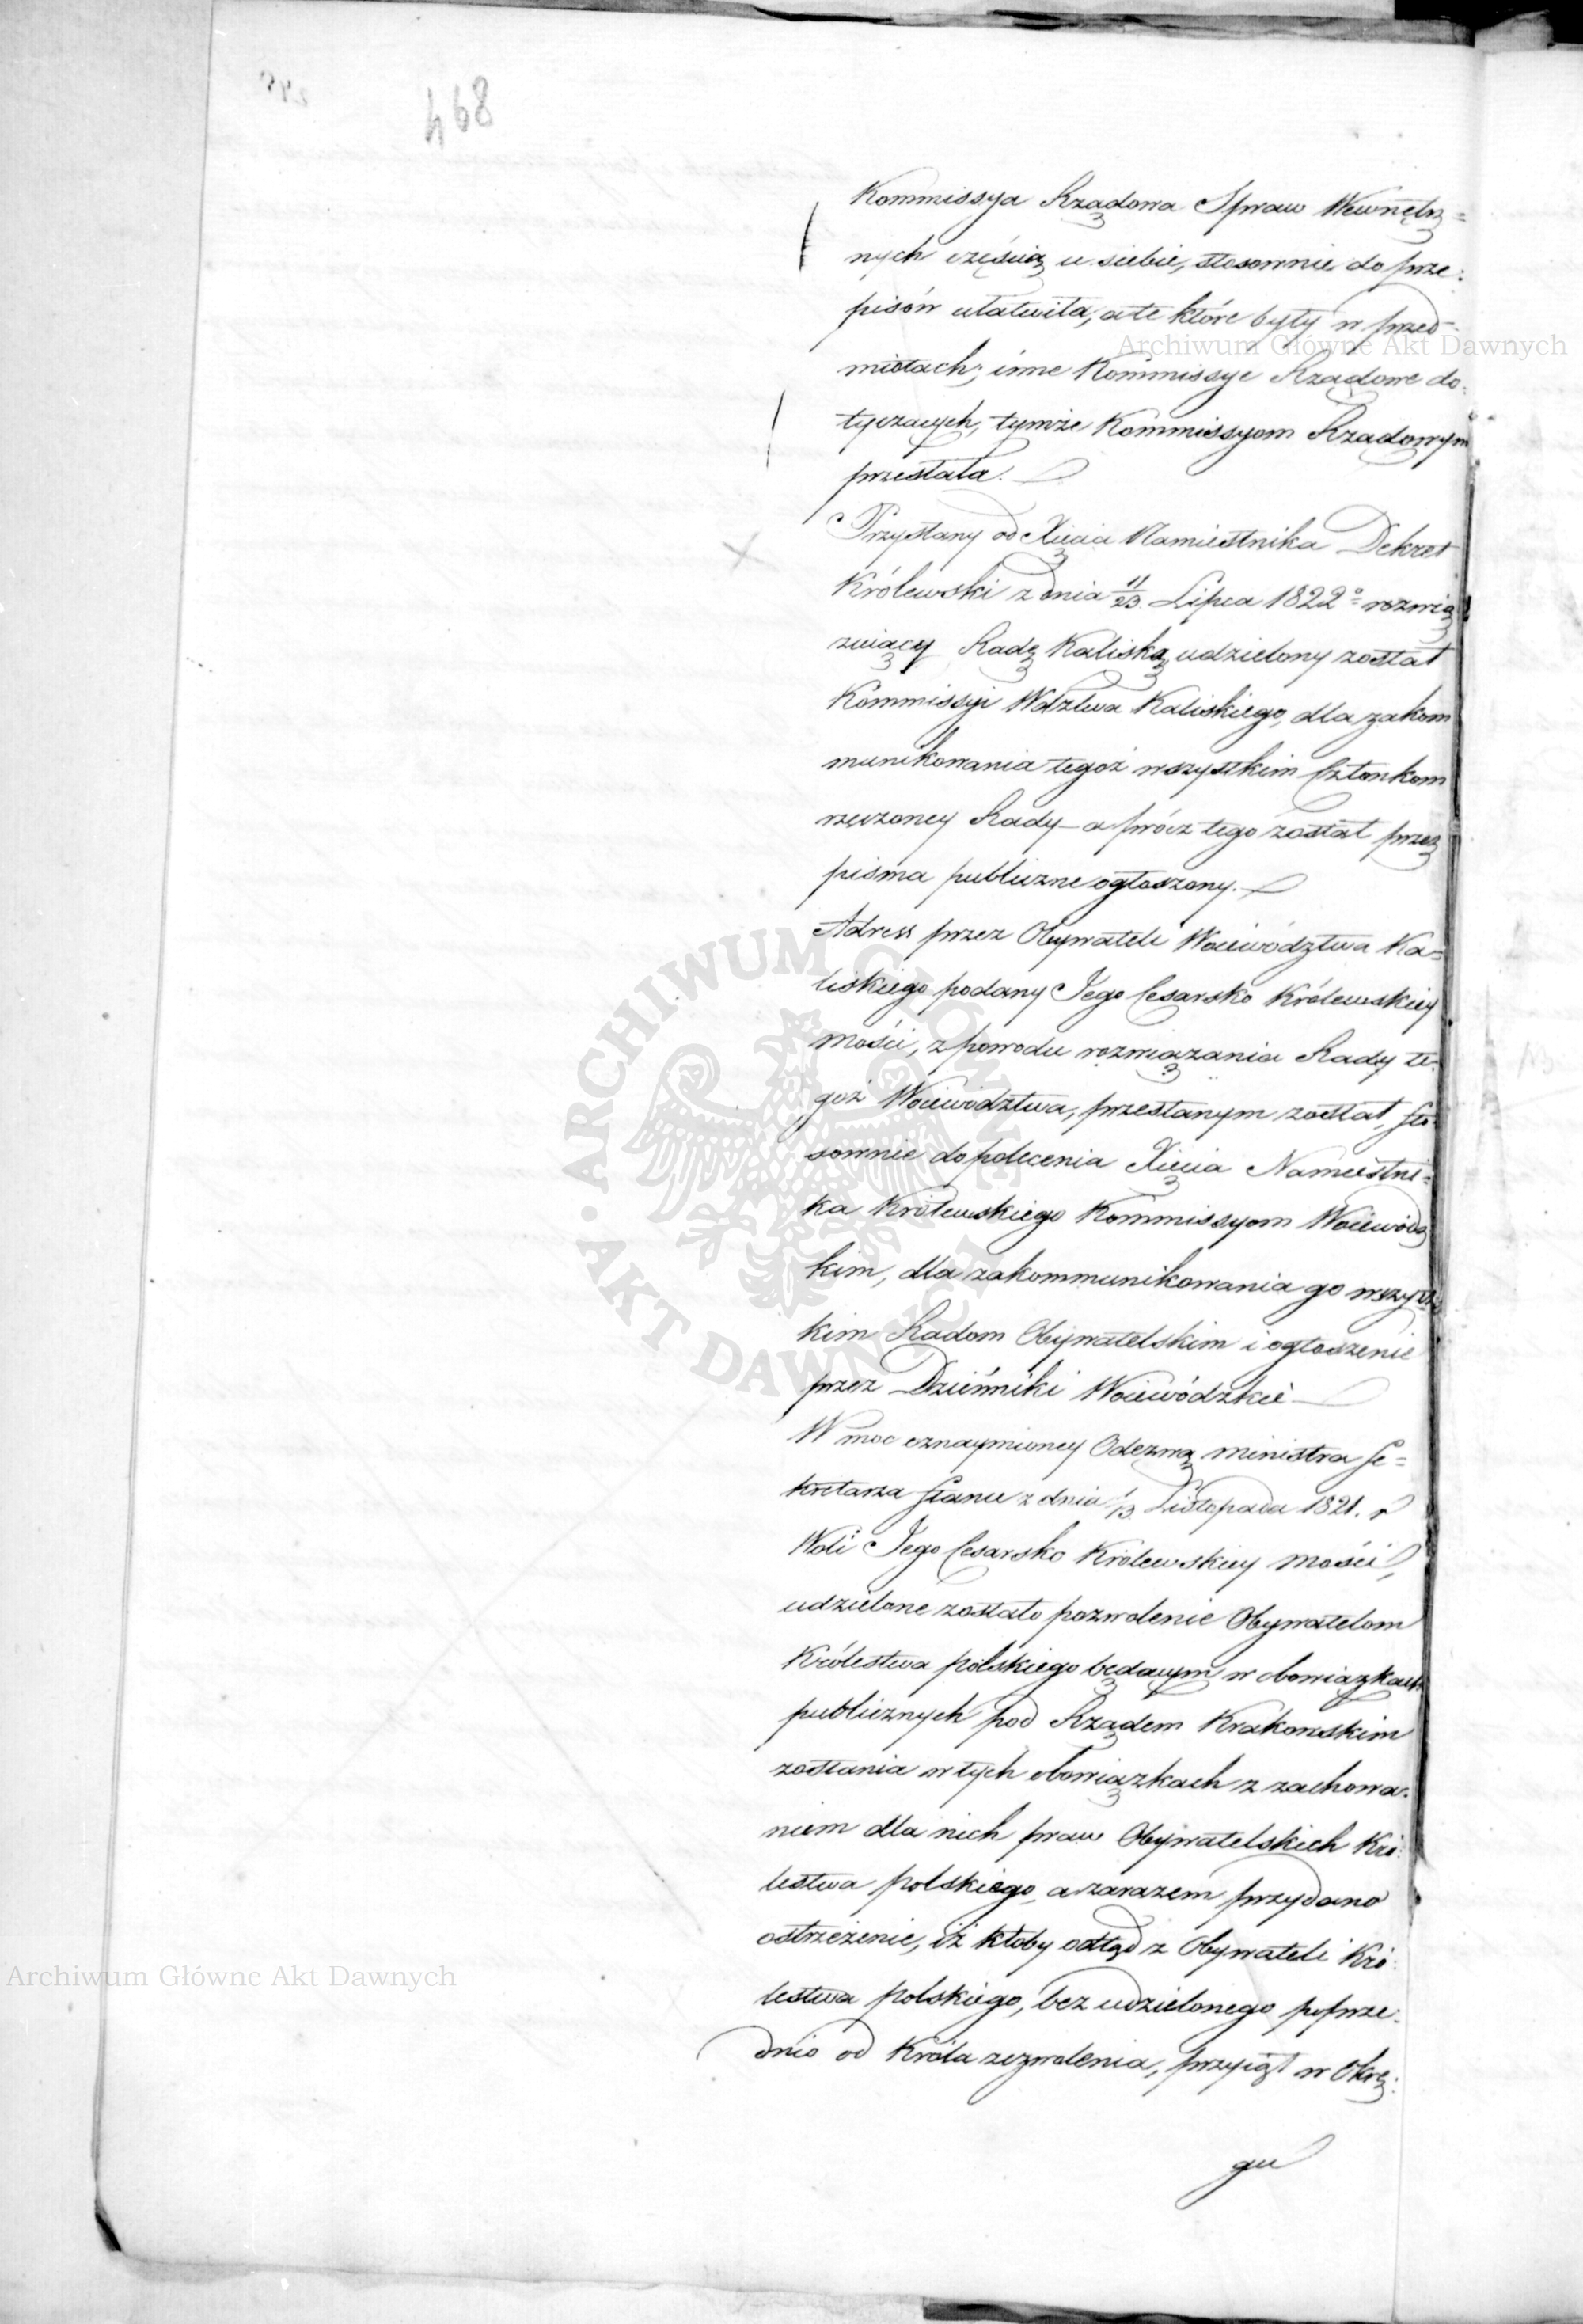 468
Kommissya Rządowa Spraw Wewnętrz=
nych częścią u siebie, stosownie do prze-
pisów ułatwiła, a te które były w przed-
miotach, inne Kommissye Rządowe do-
tyczących, tymże Kommissyom Rządowym
przesłała.
Przysłany od Xięcia Namiestnika Dekret
Królewski z dnia 11/23 Lipca 1822 rozwią
zuiący Radę Kaliską udzielony został
Kommissyi Wdztwa Kaliskiego, dla zakom
munikowania tegoż wszystkim Członkom
rzeczoney Rady – a prócz tego został przez
pisma publiczne ogłoszony.
Adress przez Obywateli Woiewództwa Ka=
liskiego podany Jego Cesarsko Królewskiey
Mości, z powodu rozwiązania Rady te-
goż Woiewództwa, przesłanym został, sto-
sownie do polecenia Xięcia Namiestni-
ka Królewskiego Kommissyom Woiewódz
kim, dla zakommunikowania go wszyst
kim Radom Obywatelskim i ogłoszenie
przez Dzienniki Woiewódzkie
W moc oznaymioney Odezwą Ministra Se=
kretarza Stanu z dnia 1/13 Listopada 1821. r
Woli Jego Cesarsko Królewskiey Mości,
udzielone zostało pozwolenie Obywatelom
Królestwa polskiego będącym w obowiązkach
publicznych pod Rządem Krakowskim
zostania w tych obowiązkach z zachowa-
niem dla nich praw Obywatelskich Kró-
lestwa polskiego, a zarazem przydano
ostrzeżenie, iż ktoby odtąd z Obywateli Kró-
lestwa polskiego, bez udzielonego poprze-
dnio od Króla zezwolenia, przyiął w Okrę-
gu
Archiwum Główne Akt Dawnych
ARCHIWUM GŁÓWNE AKT DAWNYCH
Archiwum Główne Akt Dawnych